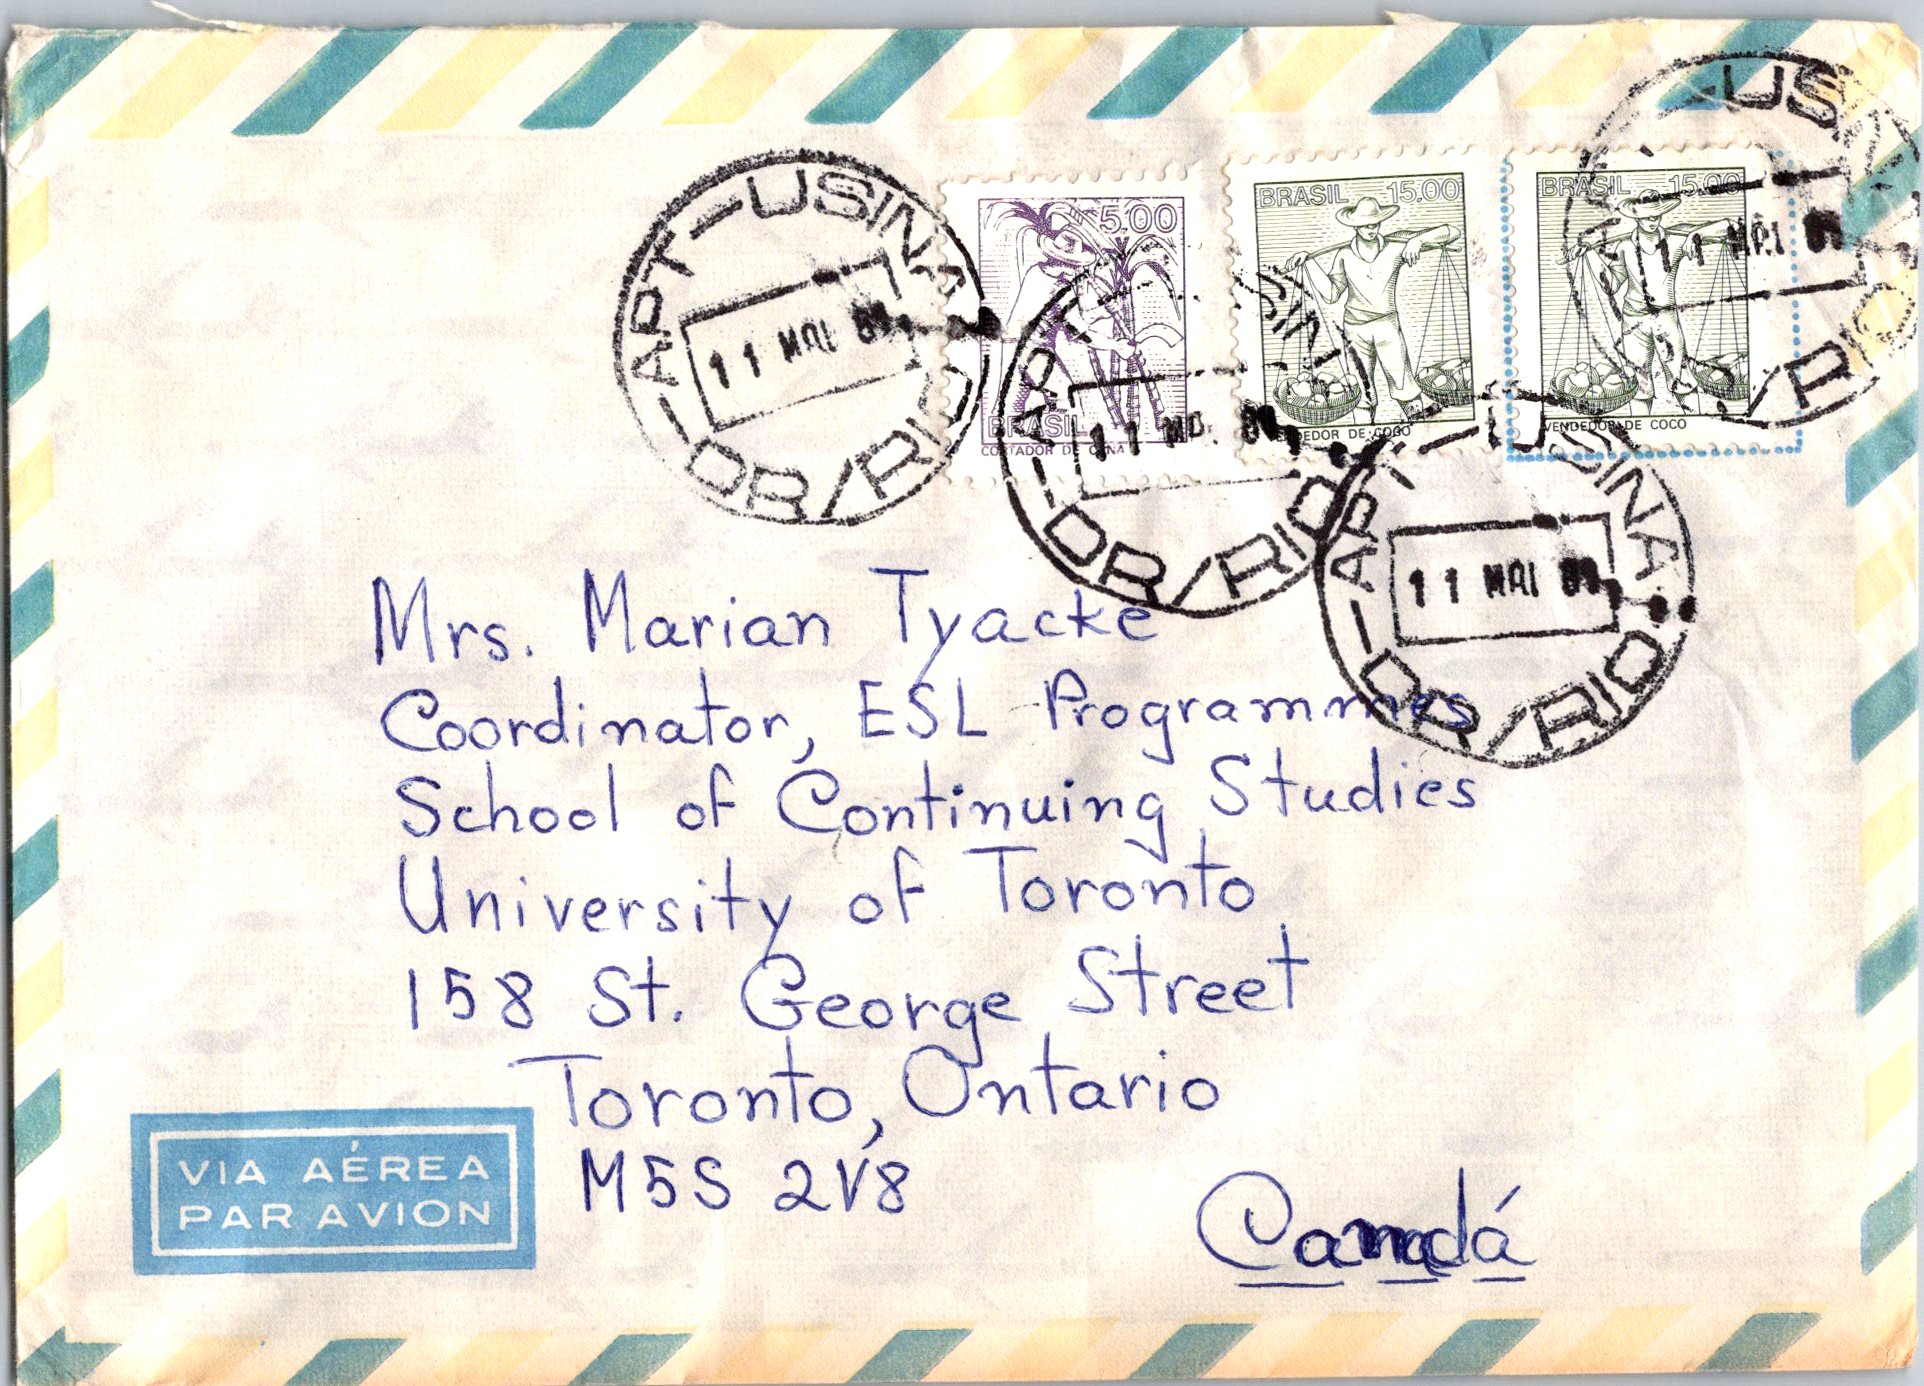 APT-USINA
11 MAI 80
DR/RIO
5,00
BRASIL
CORTADOR DE CANA
BRASIL 15,00
VENDEDOR DE COCO
BRASIL 15,00
VENDEDOR DE COCO
APT USINA
11
DR/RIO
APT-USINA
11 MAI
DR/RIO
APT-USINA
11 MAI
DR/RIO
Mrs. Marian Tyacke
Coordinator, ESL Programmes
School of Continuing Studies
University of Toronto
158 St. George Street
Toronto, Ontario
M5S 2V8
Canadá
VIA AÉREA
PAR AVION